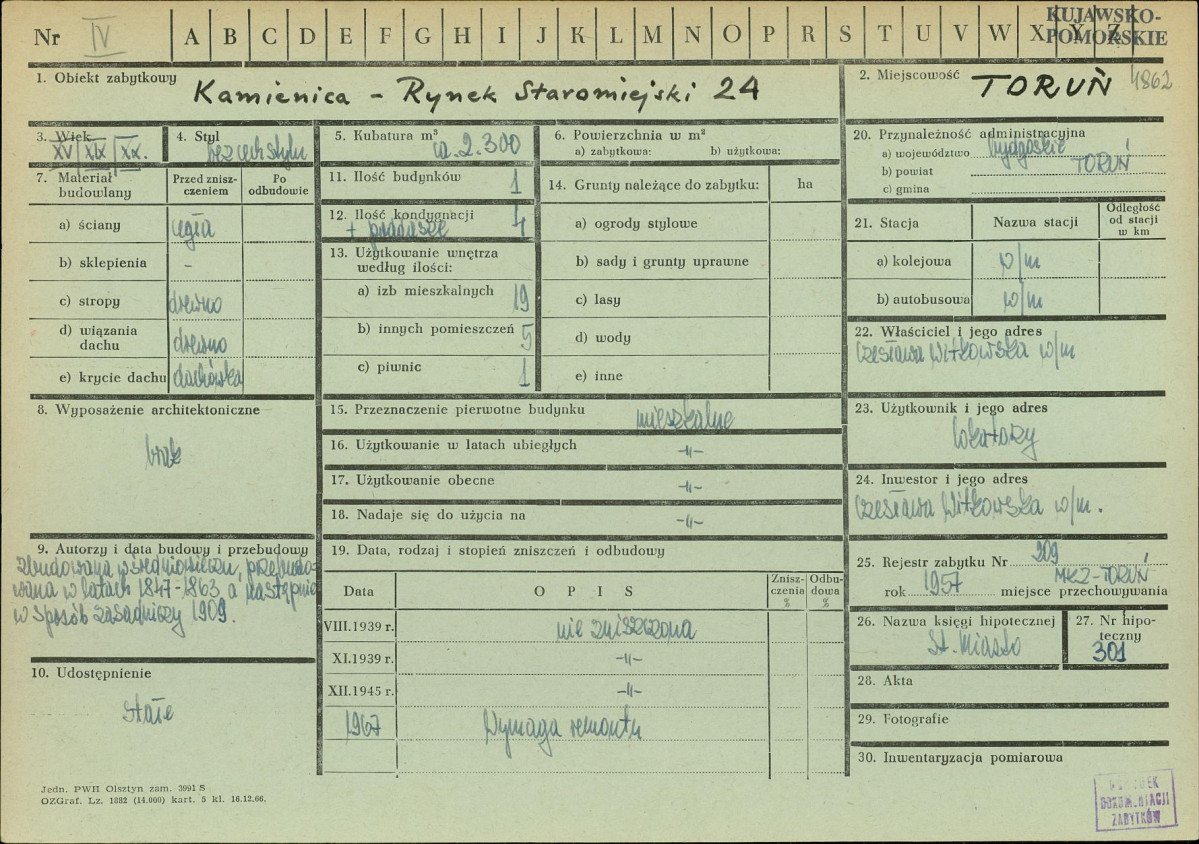 Nr IV A B C D E F G H I J K L M N O P R S T U V W X Y Z
KUJAWSKO-
POMORSKIE
1. Obiekt zabytkowy
Kamienica - Rynek Staromiejski 24
2. Miejscowość
TORUŃ
4862
3. Wiek
XV XIX XX.
4. Styl
bez cech stylu
5. Kubatura m³
ca. 2.300
6. Powierzchnia w m²
a) zabytkowa: b) użytkowa:
7. Materiał
budowlany
Przed znisz-
czeniem
Po
odbudowie
a) ściany cegła
b) sklepienia -
c) stropy drewno
d) wiązania
dachu drewno
e) krycie dachu dachówka
8. Wyposażenie architektoniczne
brak
9. Autorzy i data budowy i przebudowy
zbudowana w średniowieczu, przebudo-
wana w latach 1847-1863 a następnie
w sposób zasadniczy 1909.
10. Udostępnienie
stałe
11. Ilość budynków 1
12. Ilość kondygnacji 4
+ poddasze
13. Użytkowanie wnętrza
według ilości:
a) izb mieszkalnych 19
b) innych pomieszczeń 5
c) piwnic 1
14. Grunty należące do zabytku: ha
a) ogrody stylowe
b) sady i grunty uprawne
c) lasy
d) wody
e) inne
15. Przeznaczenie pierwotne budynku mieszkalne
16. Użytkowanie w latach ubiegłych -„-
17. Użytkowanie obecne -„-
18. Nadaje się do użycia na -„-
19. Data, rodzaj i stopień zniszczeń i odbudowy
Data
O P I S
Znisz-
czenia
%
Odbu-
dowa
%
VIII.1939 r. nie zniszczona
XI.1939 r. -„-
XII.1945 r. -„-
1967 Wymaga remontu
20. Przynależność administracyjna
a) województwo bydgoskie
b) powiat TORUŃ
c) gmina
21. Stacja
Nazwa stacji
Odległość
od stacji
w km
a) kolejowa w/m
b) autobusowa w/m
22. Właściciel i jego adres
Czesława Witkowska w/m
23. Użytkownik i jego adres
lokatorzy
24. Inwestor i jego adres
Czesława Witkowska w/m.
25. Rejestr zabytku Nr 209
rok 1957 MKZ-TORUŃ
miejsce przechowywania
26. Nazwa księgi hipotecznej
St. Miasto
27. Nr hipo-
teczny
301
28. Akta
29. Fotografie
30. Inwentaryzacja pomiarowa
Jedn. PWH Olsztyn zam. 3991 S
OZGraf. Lz. 1882 (14.000) kart. 5 kl. 16.12.66.
OŚRODEK
DOKUMENTACJI
ZABYTKÓW